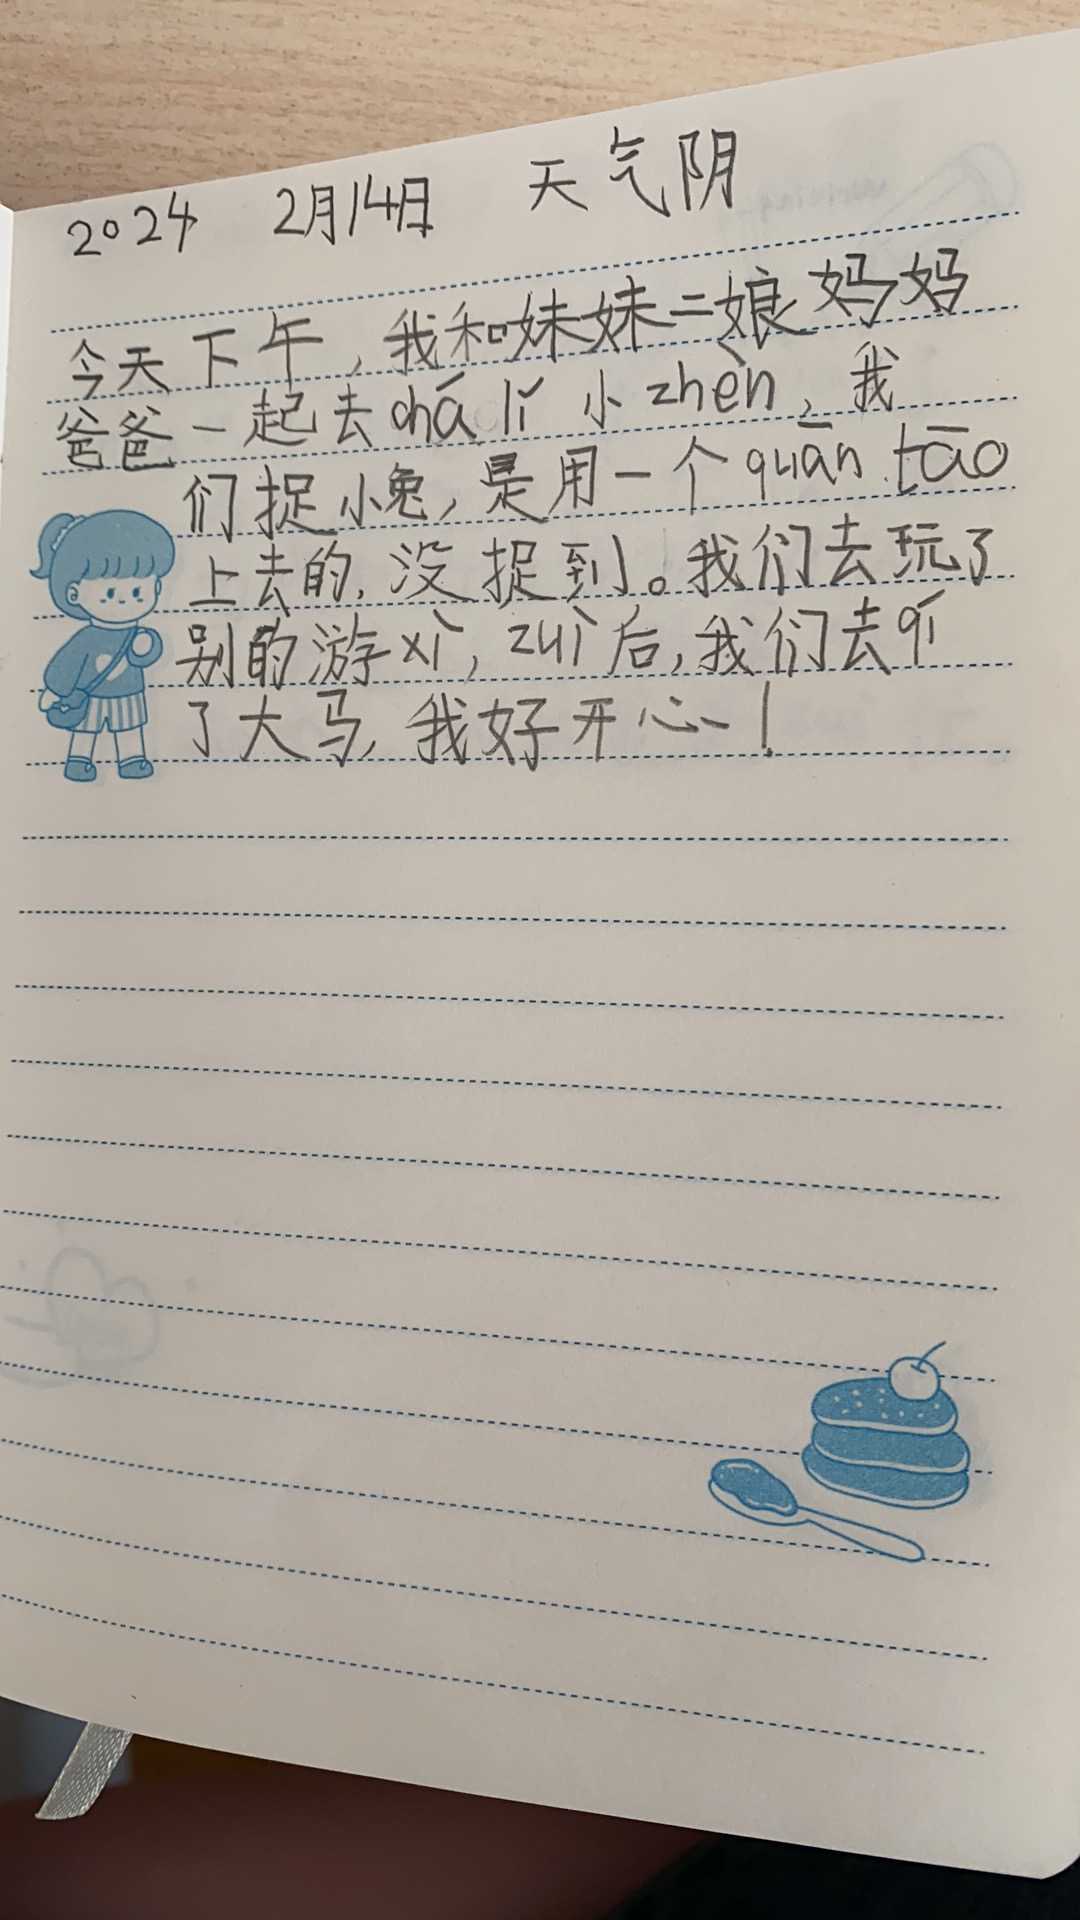 2024 2月14日 天气阴
今天下午，我和妹妹二娘妈妈
爸爸一起去chā lǐ 小zhèn，我
们捉小兔，是用一个quān tāo
上去的，没捉到。我们去玩了
别的游xì，zuì后，我们去qí
了大马，我好开心！